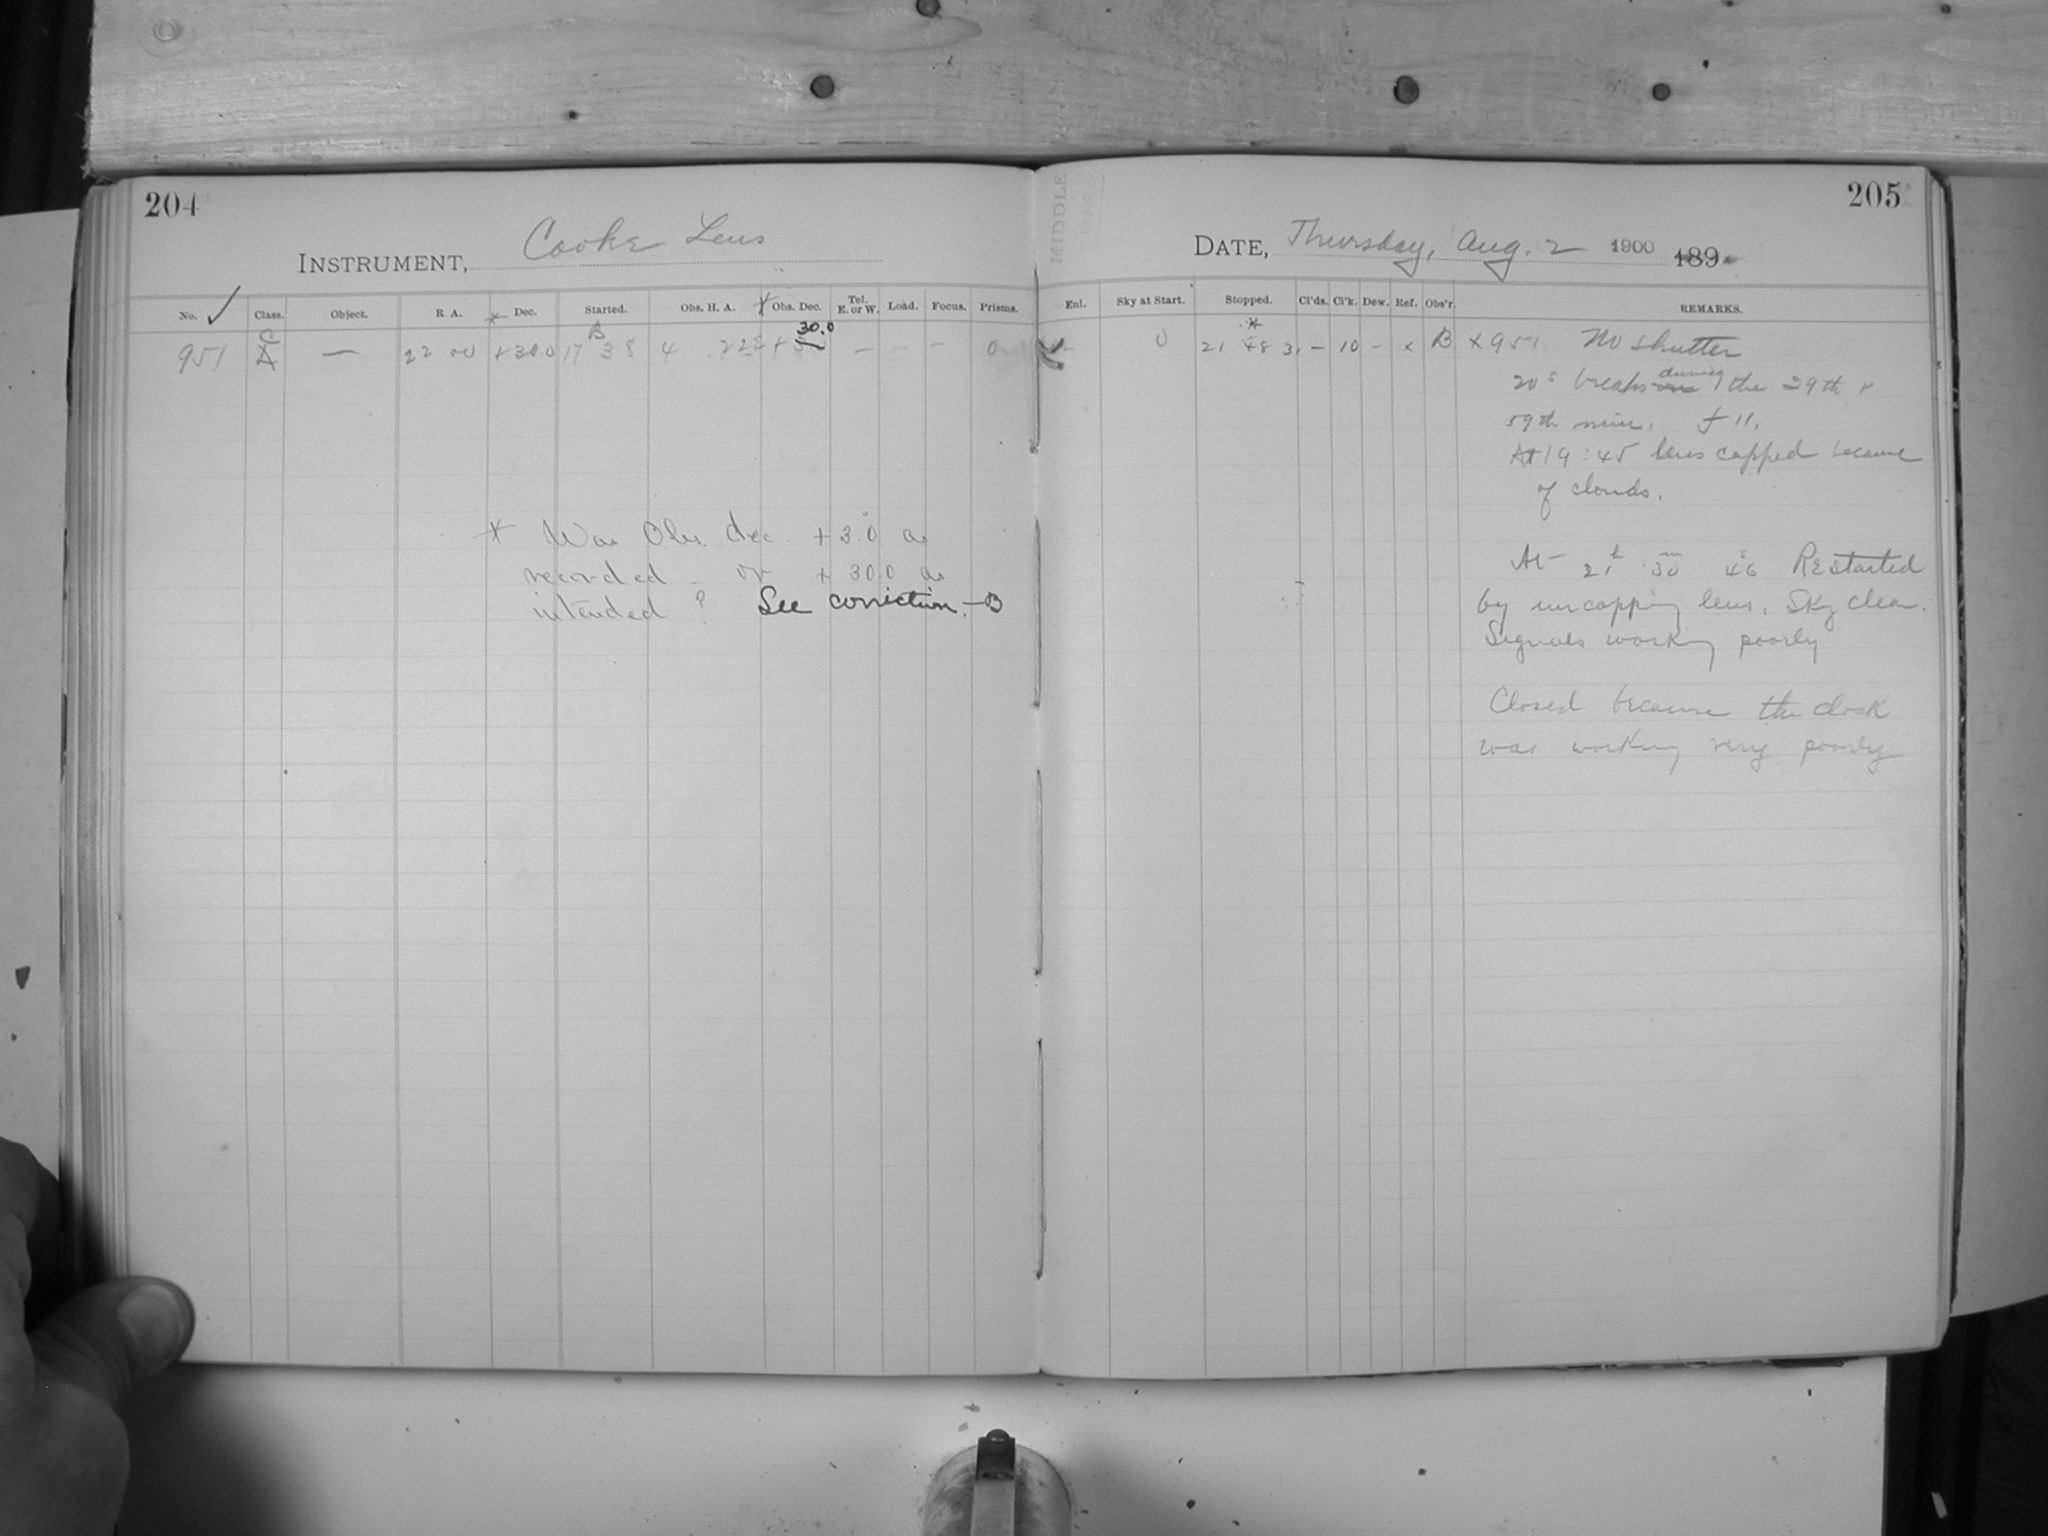 204
INSTRUMENT, Cooke Lens
No. ✓ Class. Object. R. A. * Dec. Started. Obs. H. A. * Obs. Dec. Tel. E. or W. Load. Focus. Prisms.
C B 30.0
951 A — 22 00 +30.0 17 38 4 22 E + — — — 0
* Was Obs. dec. +3.0 as
recorded — or + 30.0 as
intended? See correction. — B
MIDDLE
205
DATE, Thursday, Aug. 2 1900 189
Enl. Sky at Start. Stopped. Cl'ds. Cl'k. Dew. Ref. Obs'r. REMARKS.
*
0 21 48 31 — 10 — x B x 951 No shutter
20s breaks during the 29th &
59th min. f 11.
At 19:45 lens capped because
of clouds.
At 21h 30m 46s Restarted
by uncapping lens. Sky clear.
Signals working poorly
Closed because the clock
was working very poorly